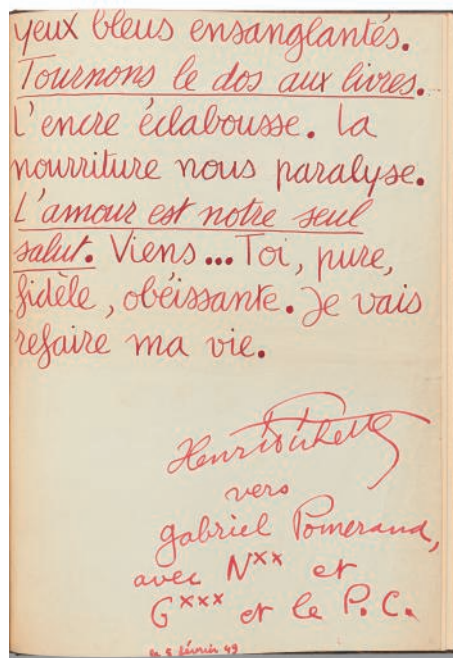 yeux bleus ensanglantés.
Tournons le dos aux livres.
L'encre éclabousse. La
nourriture nous paralyse.
L'amour est notre seul
salut. Viens... Toi, pure,
fidèle, obéissante. Je vais
refaire ma vie.
Henri Pichette
vers
Gabriel Pomerand,
avec N** et
G*** et le P.C.
le 8 février 49